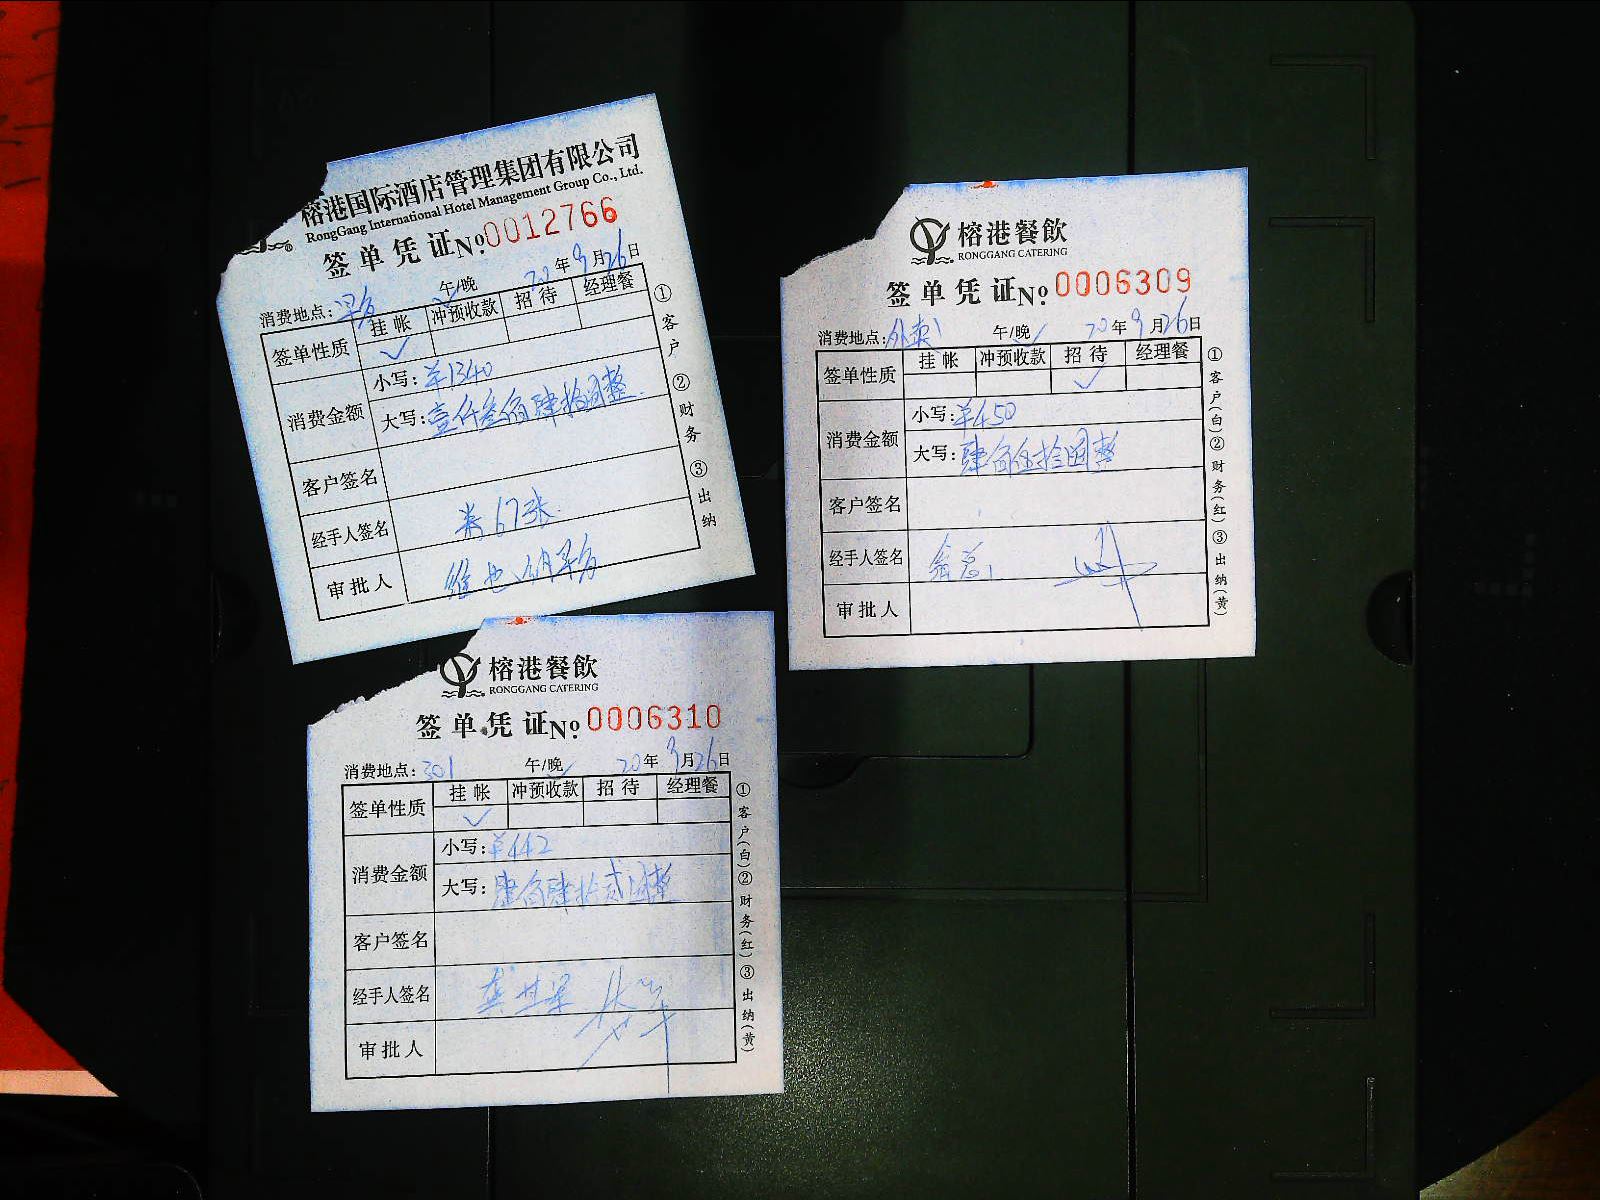 榕港国际酒店管理集团有限公司
RongGang International Hotel Management Group Co., Ltd.
签单凭证 No. 0012766
消费地点: 早房 午/晚 20年9月26日
签单性质 挂帐 冲预收款 招待 经理餐
✓
消费金额 小写: ¥1340
大写: 壹仟叁佰肆拾圆整
客户签名
经手人签名 券67张
审批人 维也纳早房
①客户 ②财务 ③出纳
榕港餐飲
RONGGANG CATERING
签单凭证 No. 0006309
消费地点: 外卖 午/晚 ✓ 20年9月26日
签单性质 挂帐 冲预收款 招待 经理餐
✓
消费金额 小写: ¥450
大写: 肆佰伍拾圆整
客户签名
经手人签名
审批人
①客户(白) ②财务(红) ③出纳(黄)
榕港餐飲
RONGGANG CATERING
签单凭证 No. 0006310
消费地点: 301 午/晚 ✓ 20年9月26日
签单性质 挂帐 冲预收款 招待 经理餐
✓
消费金额 小写: ¥442
大写: 肆佰肆拾贰圆整
客户签名
经手人签名
审批人
①客户(白) ②财务(红) ③出纳(黄)